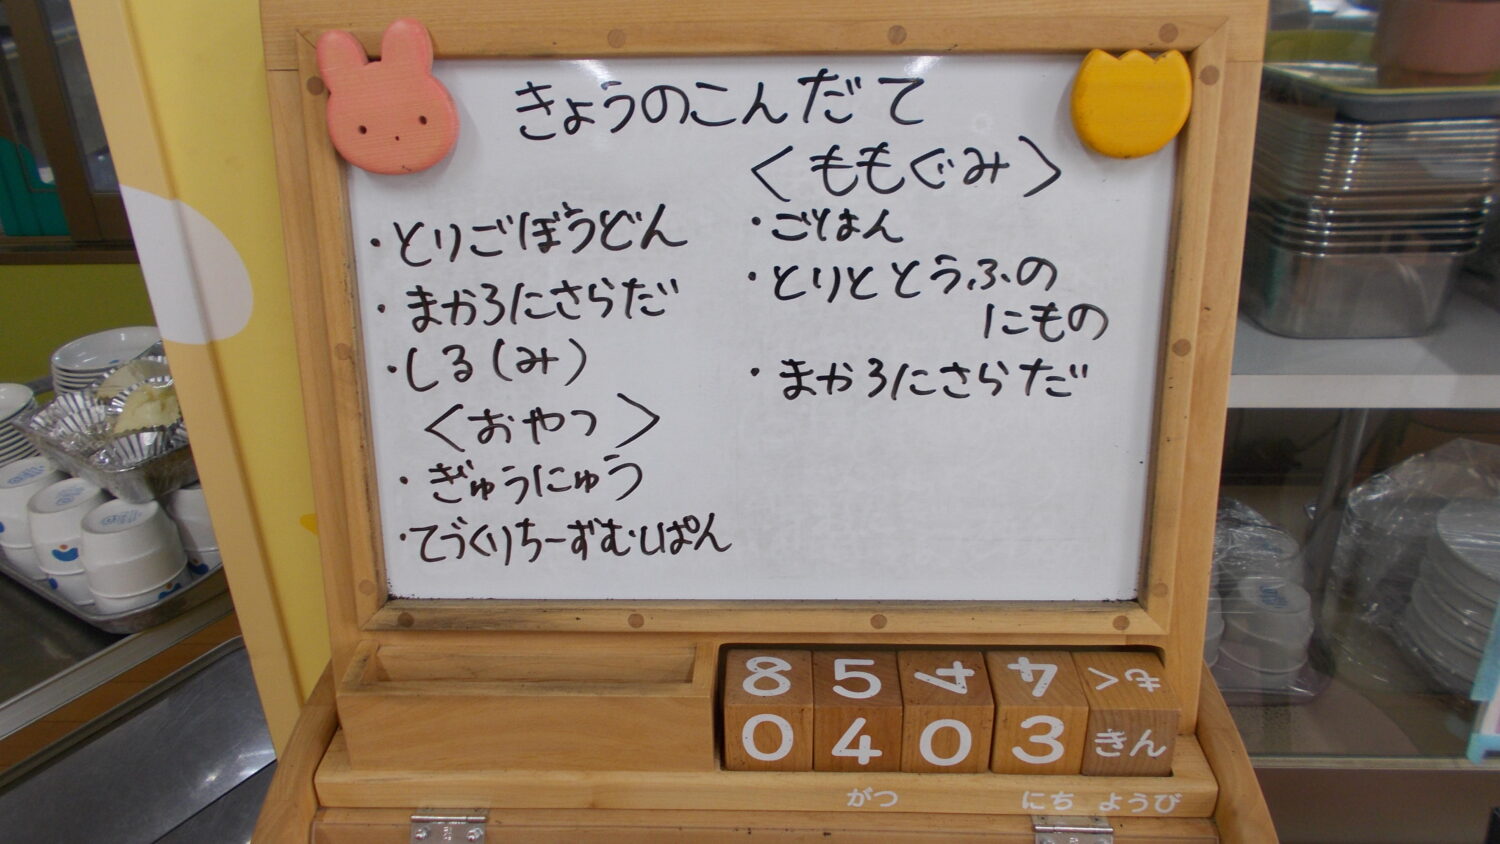 きょうのこんだて
・とりごぼうどん
・まかろにさらだ
・しる(み)
<おやつ>
・ぎゅうにゅう
・てづくりちーずむしぱん
<ももぐみ>
・ごはん
・とりととうふの
にもの
・まかろにさらだ
8 5 4 4 もく
0 4 0 3 きん
がつ にち ようび